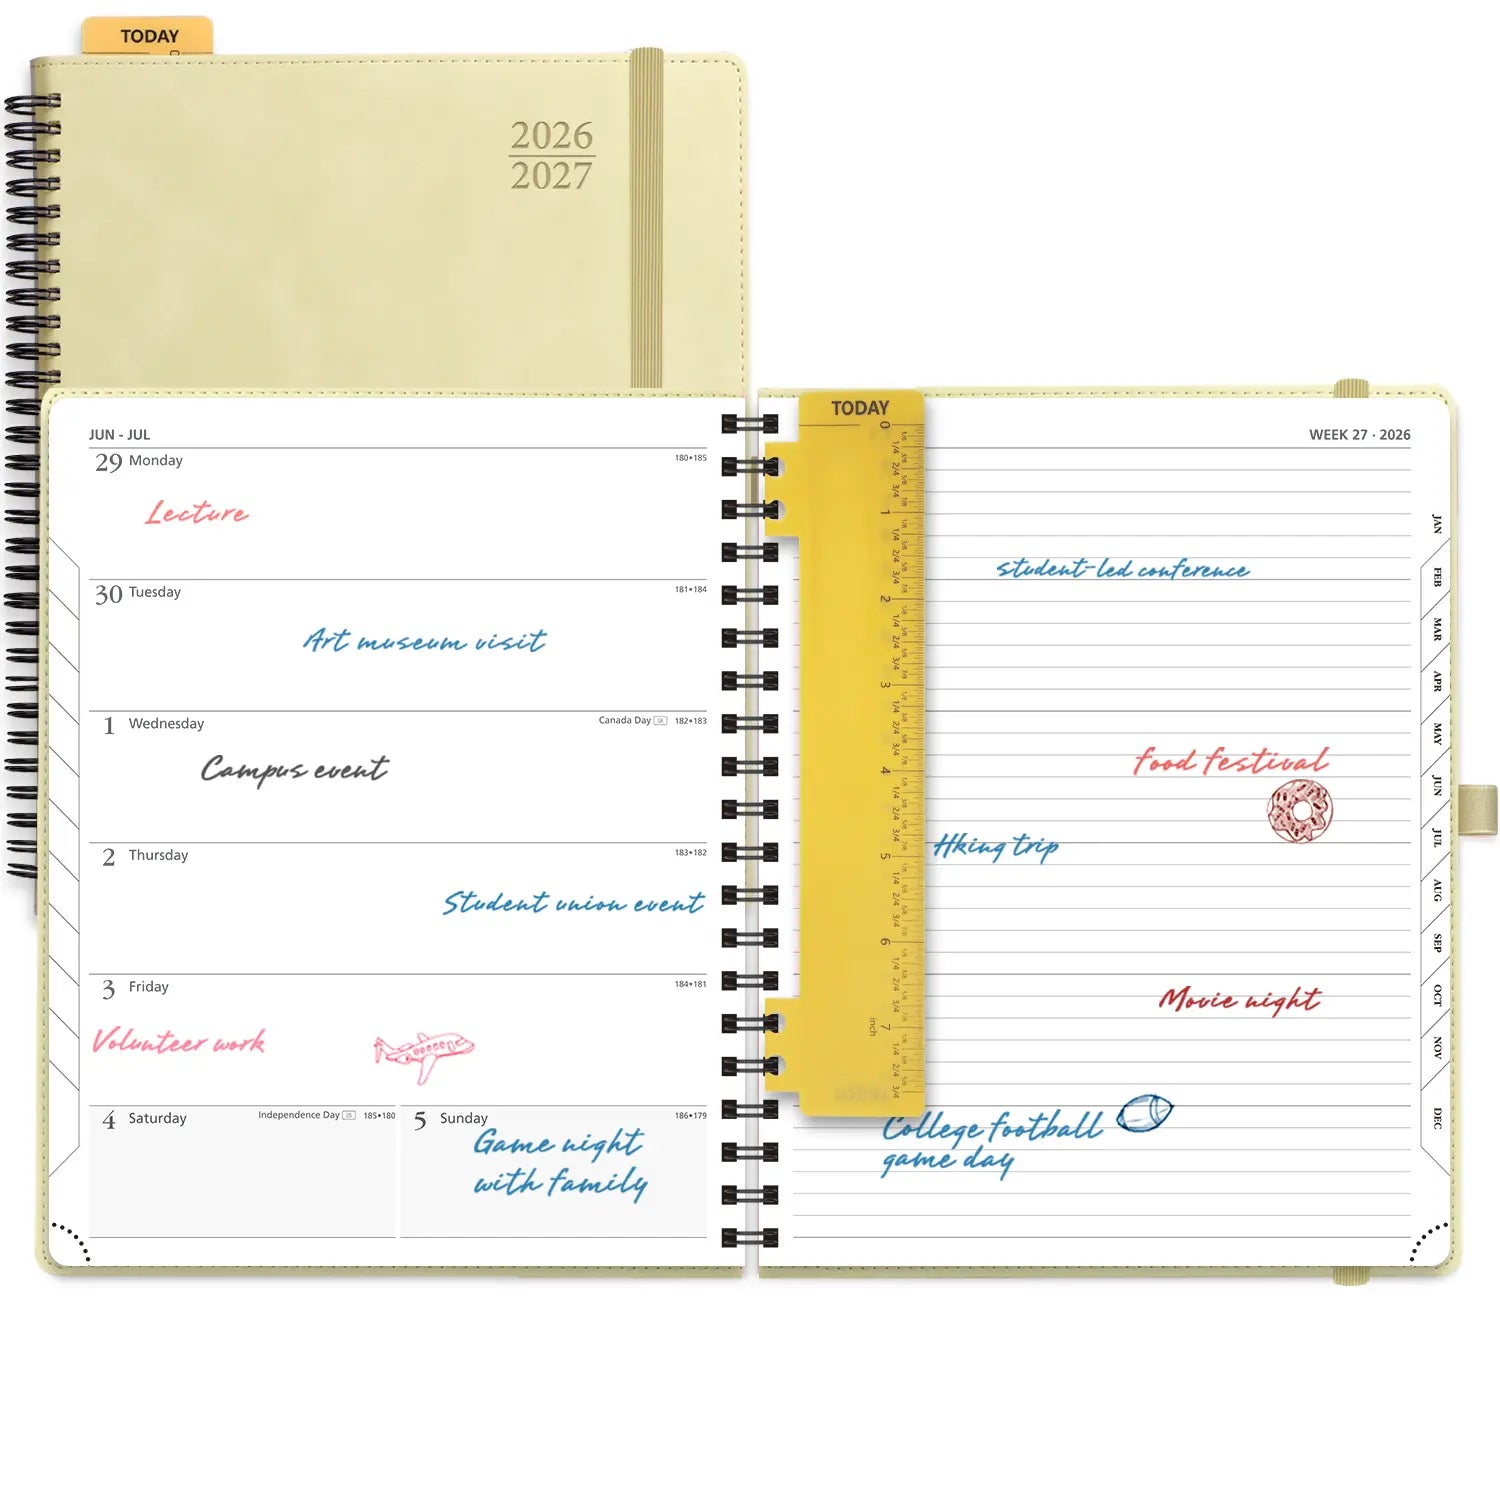 TODAY
2026
2027
JUN - JUL
29 Monday 180•185
Lecture
30 Tuesday 181•184
Art museum visit
1 Wednesday Canada Day CA 182•183
Campus event
2 Thursday 183•182
Student union event
3 Friday 184•181
Volunteer work
4 Saturday Independence Day US 185•180
5 Sunday 186•179
Game night
with family
TODAY
0
1/4 2/4 3/4
1
1/4 2/4 3/4
2
1/4 2/4 3/4
3
1/4 2/4 3/4
4
1/4 2/4 3/4
5
1/4 2/4 3/4
6
1/4 2/4 3/4
inch
7
1/4 2/4 3/4
WEEK 27 · 2026
student-led conference
food festival
Hking trip
Movie night
College football
game day
JAN
FEB
MAR
APR
MAY
JUN
JUL
AUG
SEP
OCT
NOV
DEC